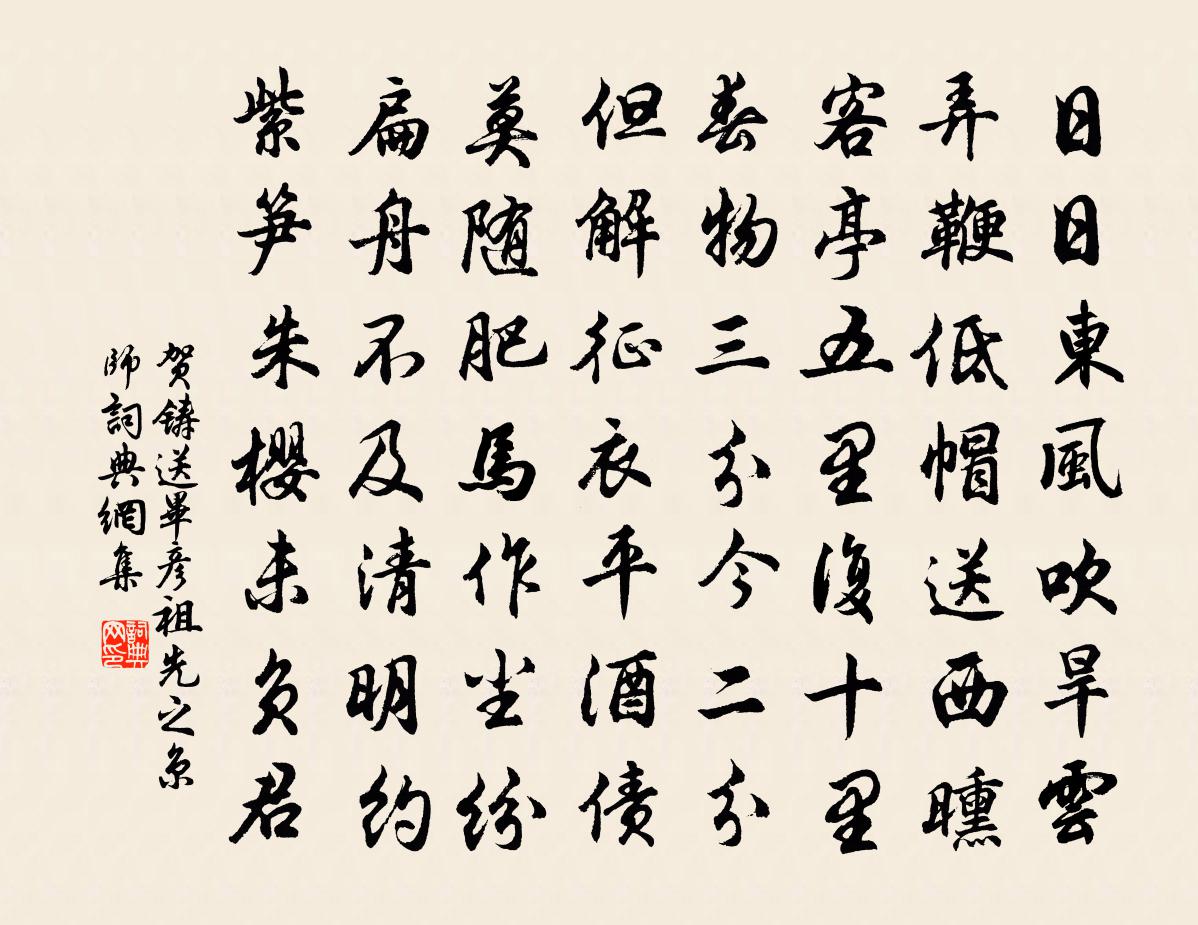 日日東風吹旱雲
弄鞭低帽送西曛
客亭五里復十里
春物三分今二分
但解征衣平酒債
莫随肥馬作尘紛
扁舟不及清明約
紫笋朱櫻未負君
賀鑄送畢彦祖先之京
師詞典網集
詞典网印